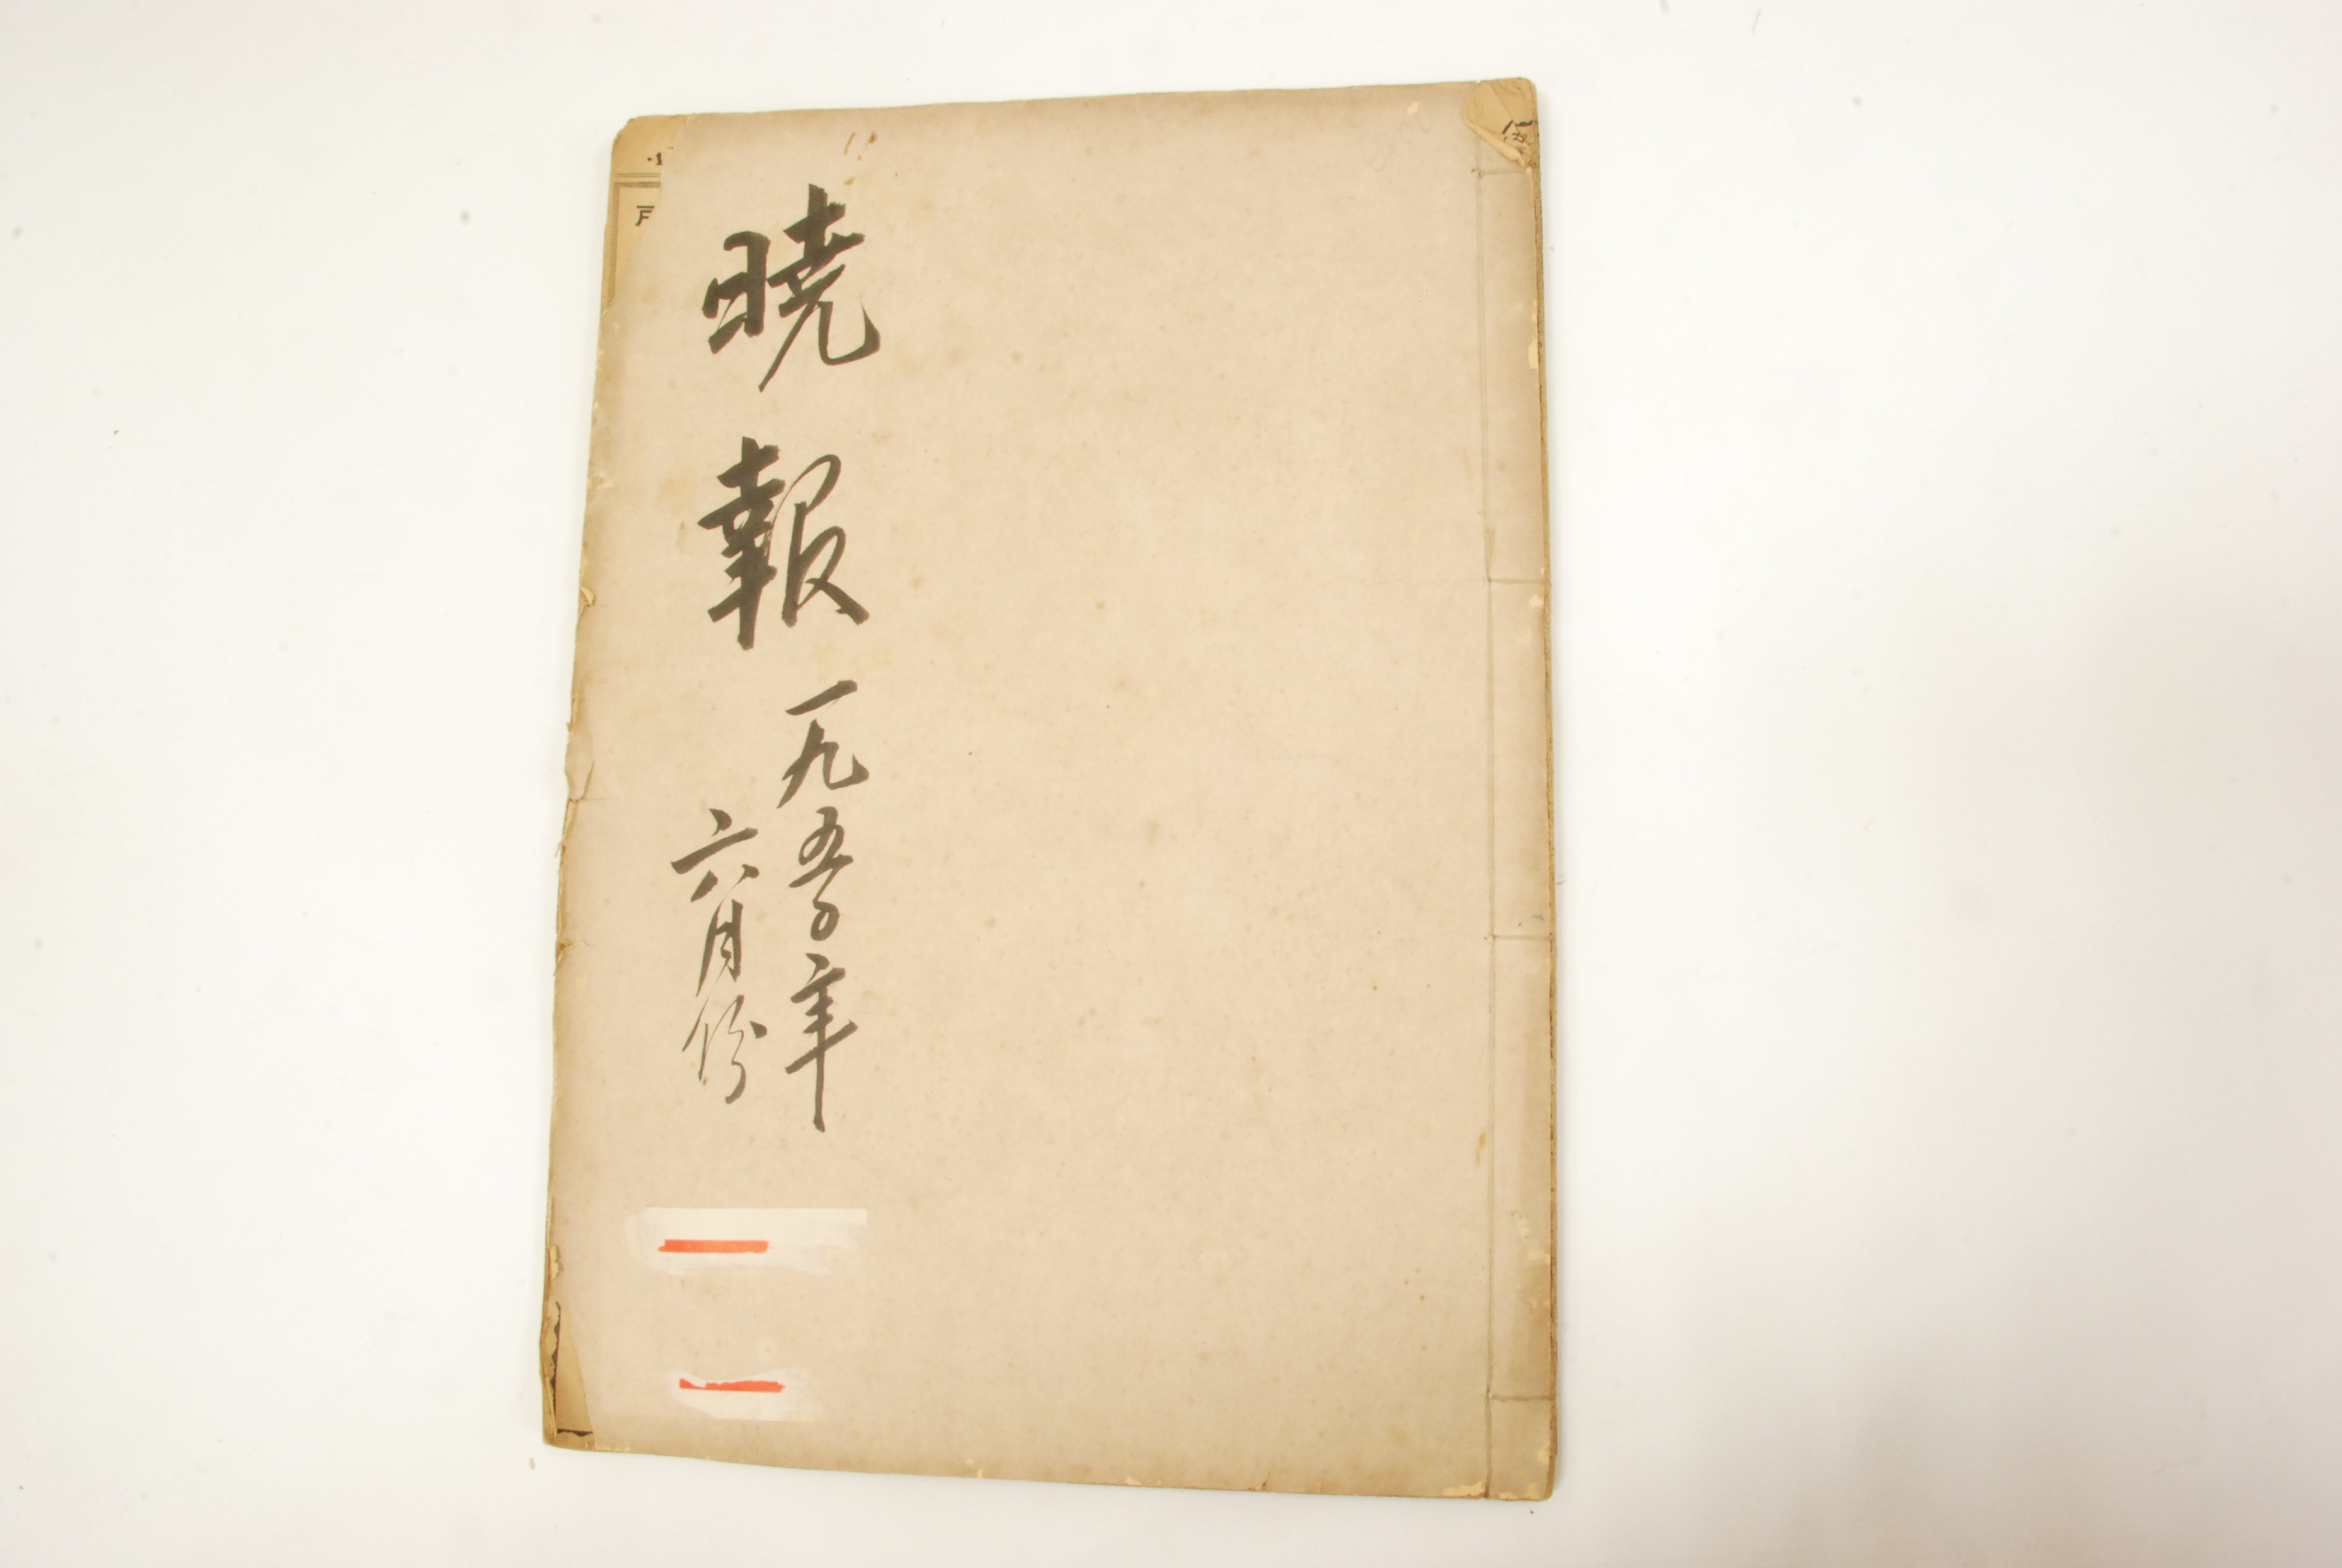 曉報
一九五〇年
六月份